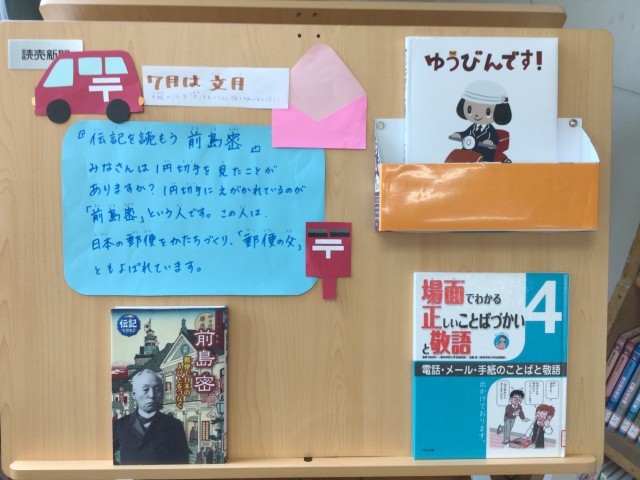 読売新聞
7月は 文月
『伝記を読もう 前島密』
みなさんは1円切手を見たことが
ありますか？1円切手にえがかれているのが
「前島密」という人です。この人は、
日本の郵便をかたちづくり、「郵便の父」
ともよばれています。
ゆうびんです!
伝記
前島密
場面でわかる
正しいことばづかい
と敬語
4
電話・メール・手紙のことばと敬語
出かけております。